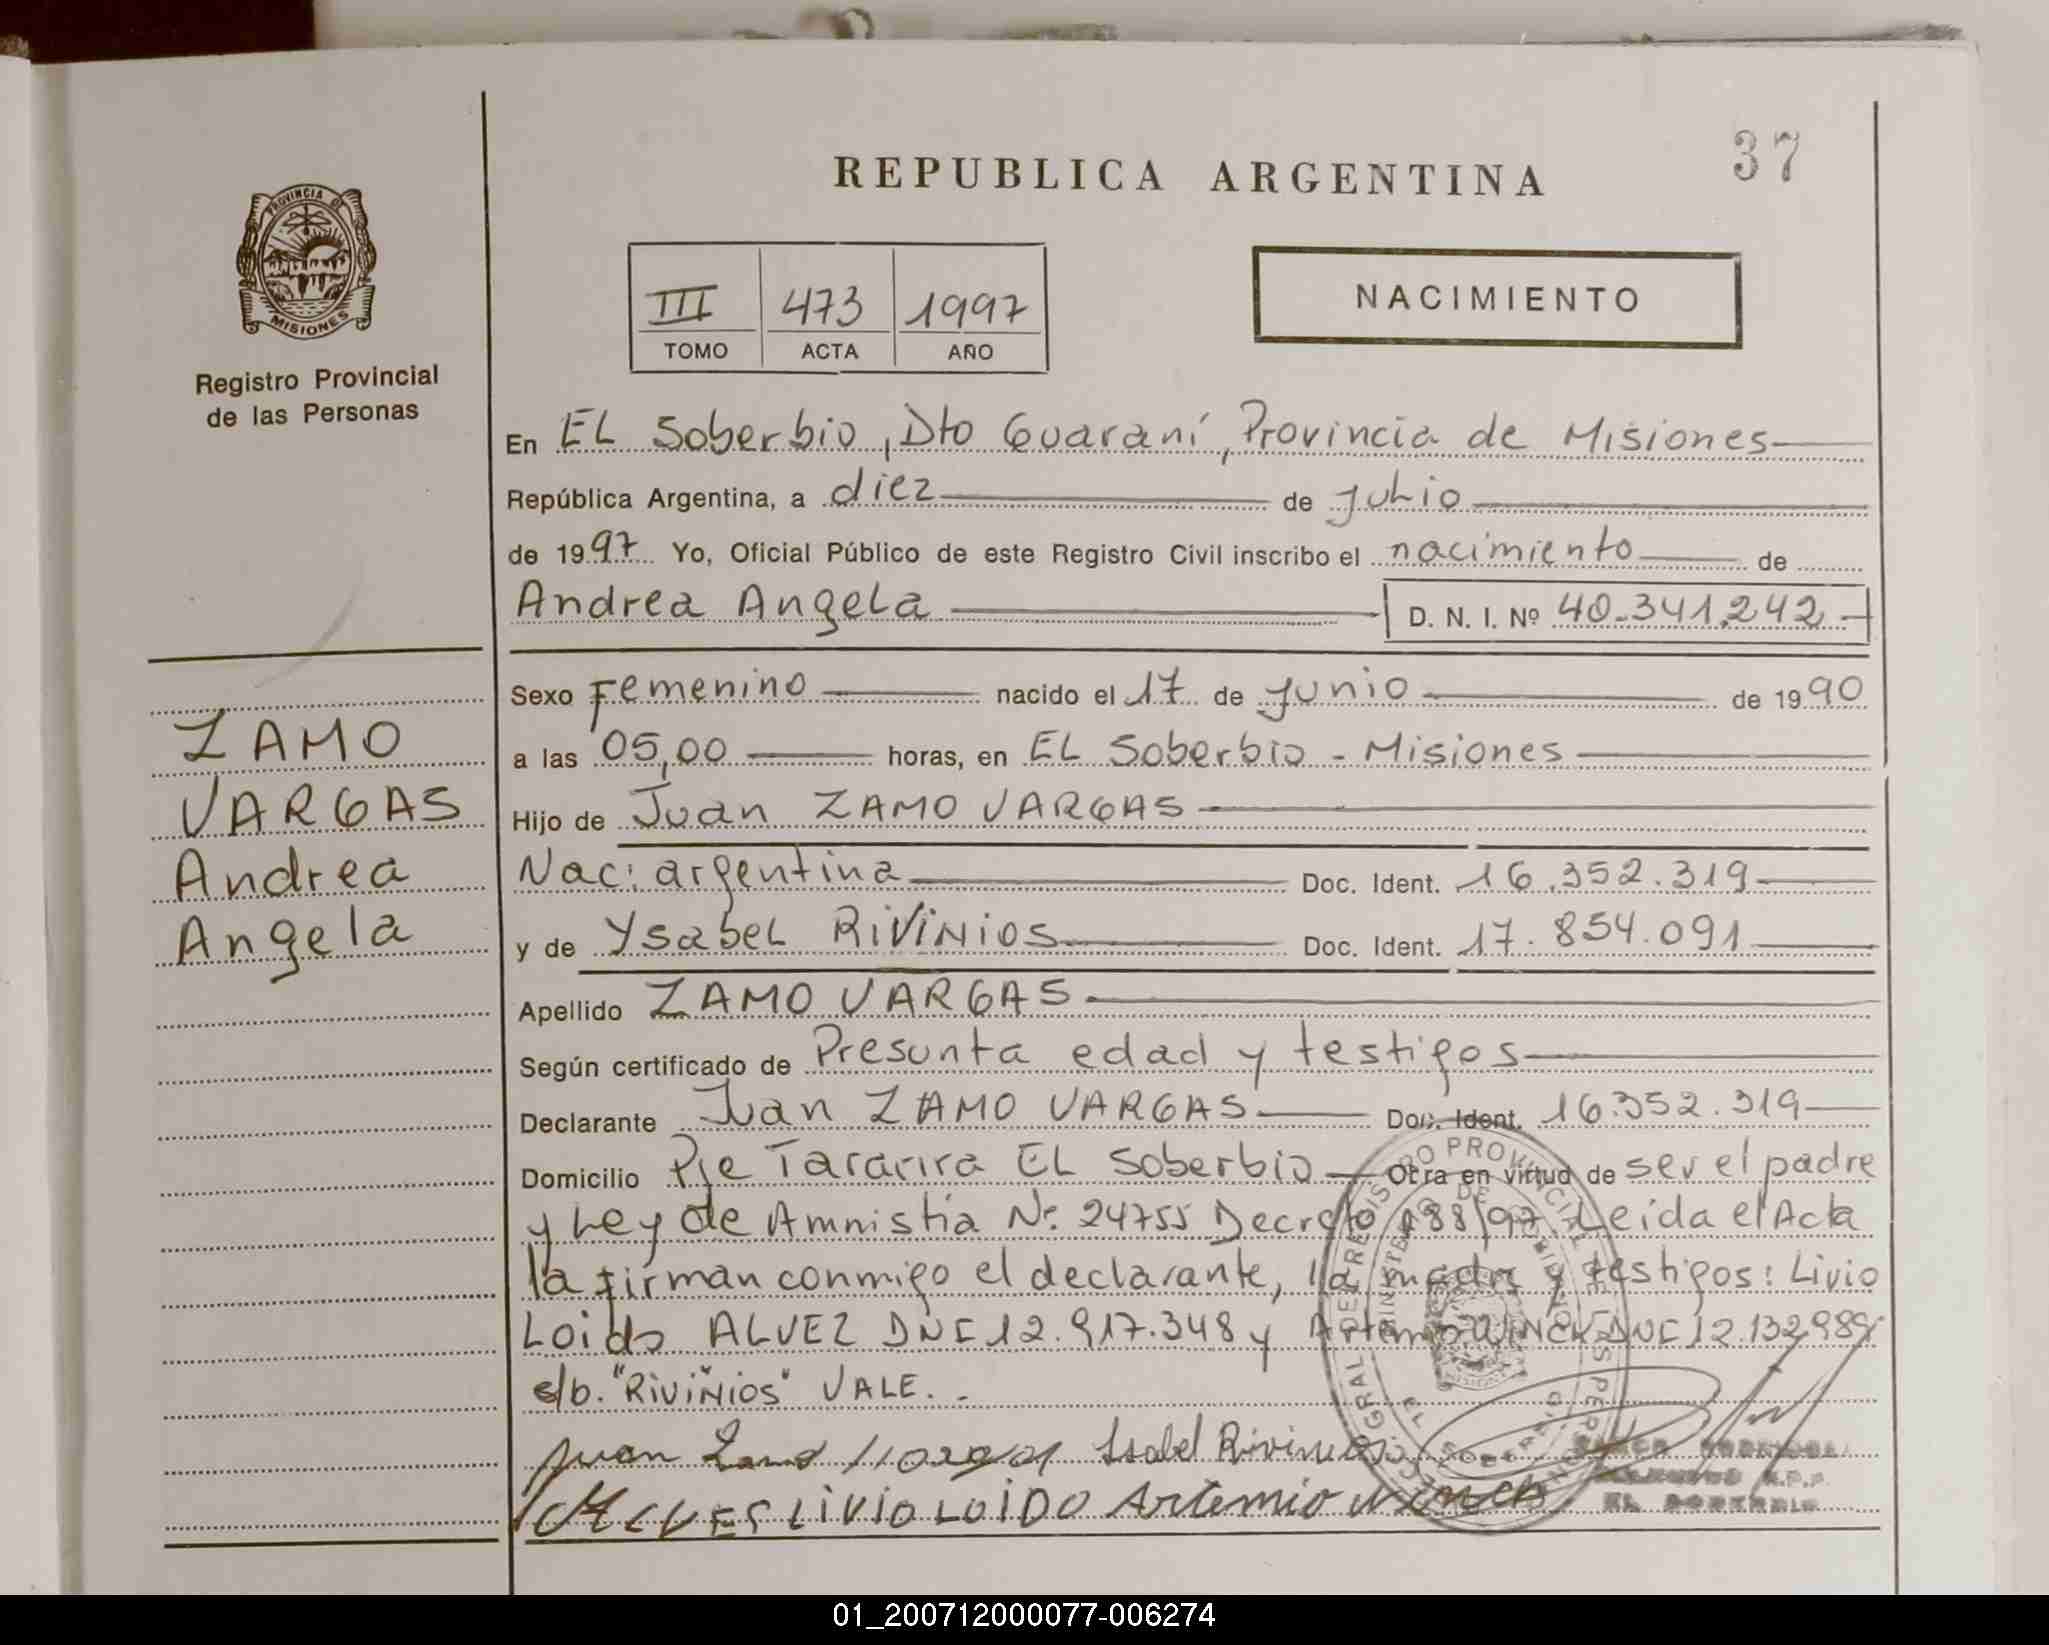 37
REPUBLICA ARGENTINA
PROVINCIA DE
MISIONES
Registro Provincial
de las Personas
III 473 1997
TOMO ACTA AÑO
NACIMIENTO
En EL Soberbio, Dto Guaraní, Provincia de Misiones
República Argentina, a diez de Julio
de 1997 Yo, Oficial Público de este Registro Civil inscribo el nacimiento de
Andrea Angela D. N. I. Nº 40.341.242
Sexo Femenino nacido el 17 de Junio de 1990
a las 05,00 horas, en EL Soberbio - Misiones
Hijo de Juan ZAMO VARGAS
Nac: argentina Doc. Ident. 16.352.319
y de Ysabel RIVIÑIOS Doc. Ident. 17.854.091
Apellido ZAMO VARGAS
Según certificado de Presunta edad y testigos
Declarante Juan ZAMO VARGAS Doc. Ident. 16.352.319
Domicilio Pje Tararira EL Soberbio Obra en virtud de ser el padre
y Ley de Amnistía Nº 24755 Decreto 188/97 Leída el Acta
la firman conmigo el declarante, la madre y testigos: Livio
Loido ALVEZ DNI 12.917.348 y Artemio WINCK DNI 12.132.989
s/b. "RIVIÑIOS" VALE.-
Juan Zamo Vargas Isabel Rivinios
ALVES LIVIO LOIDO Artemio Winck
ZAMO
VARGAS
Andrea
Angela
REGISTRO PROVINCIAL DE LAS PERSONAS
MINISTERIO DE GOBIERNO
EL SOBERBIO
MISIONES
EL SOBERBIO
01_200712000077-006274